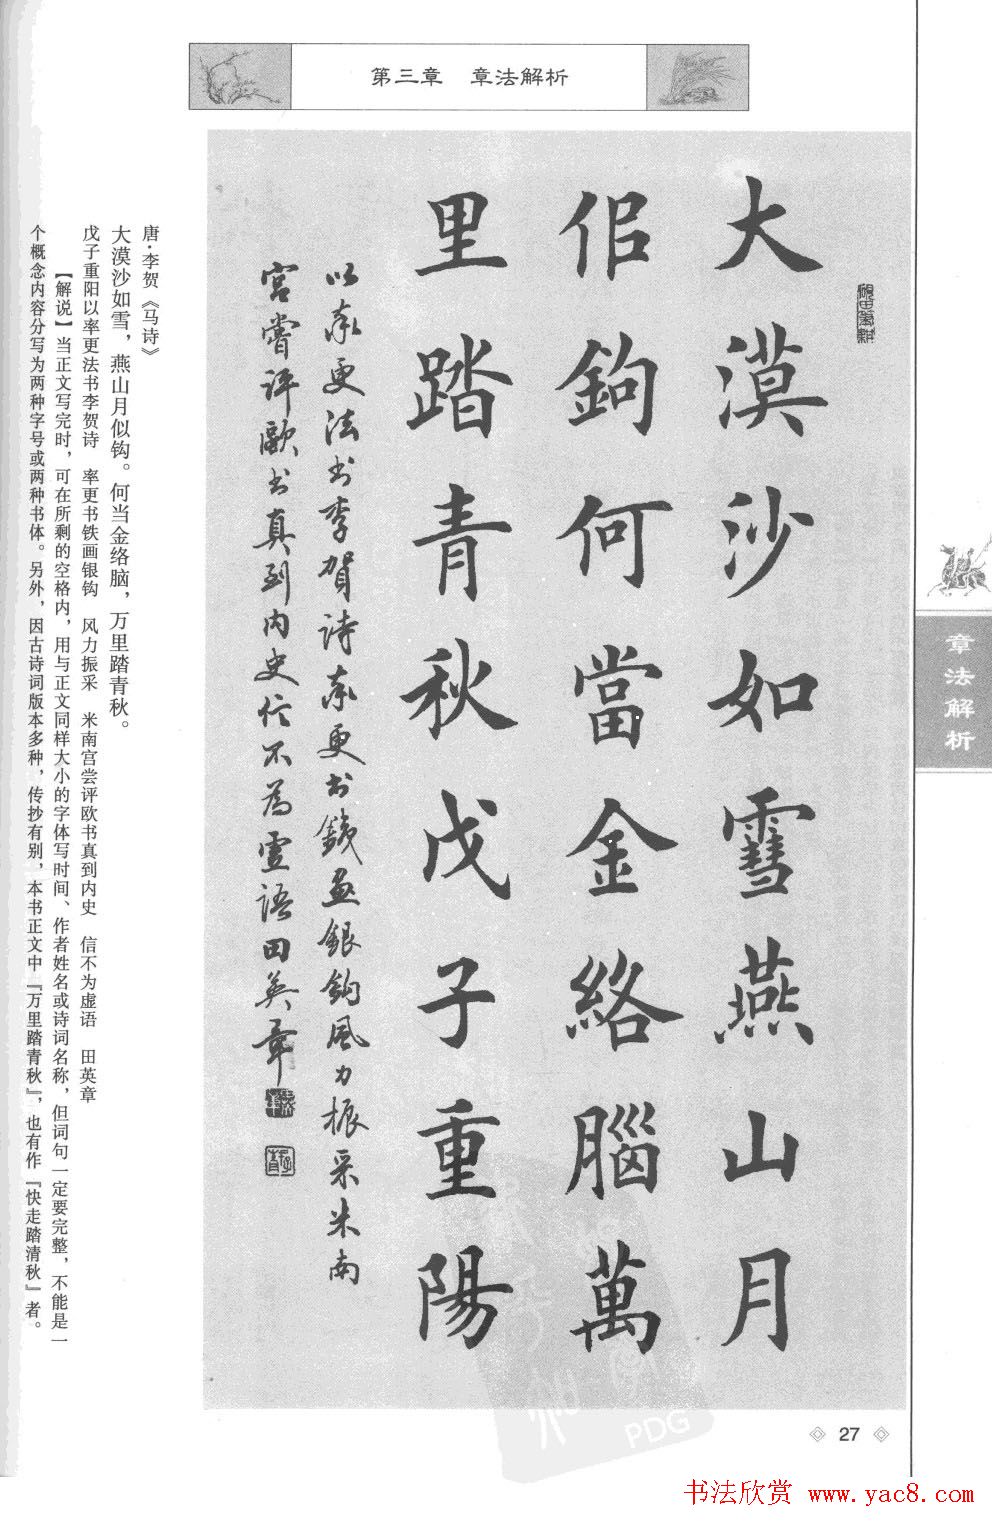 第三章　章法解析
大漠沙如雪燕山月
佀鉤何當金絡腦萬
里踏青秋戊子重陽
以率更法书李賀詩率更书鐵畫銀鉤風力振采米南
宮嘗評歐书真到内史信不為虛語田英章
唐·李贺《马诗》
大漠沙如雪，燕山月似钩。何当金络脑，万里踏青秋。
戊子重阳以率更法书李贺诗　率更书铁画银钩　风力振采　米南宫尝评欧书真到内史　信不为虚语　田英章
【解说】当正文写完时，可在所剩的空格内，用与正文同样大小的字体写时间、作者姓名或诗词名称，但词句一定要完整，不能是一
个概念内容分写为两种字号或两种书体。另外，因古诗词版本多种，传抄有别，本书正文中『万里踏青秋』，也有作『快走踏清秋』者。
章法解析
27
PDG
书法欣赏 www.yac8.com